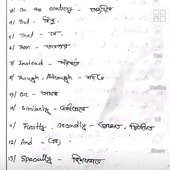 ৪/ On the contrary - অন্যদিকে
৫/ But - কিন্তু
৬/ That - যে
৭/ Then - তারপর
৮/ Instead - পরিবর্তে
৯/ Though, Although - যদিও
১০/ Or - অথবা
১১/ Similarly - একইভাবে
১২/ Firstly, secondly - প্রথমত, দ্বিতীয়ত
১৩/ And - এবং
১৪/ Specially - বিশেষভাবে